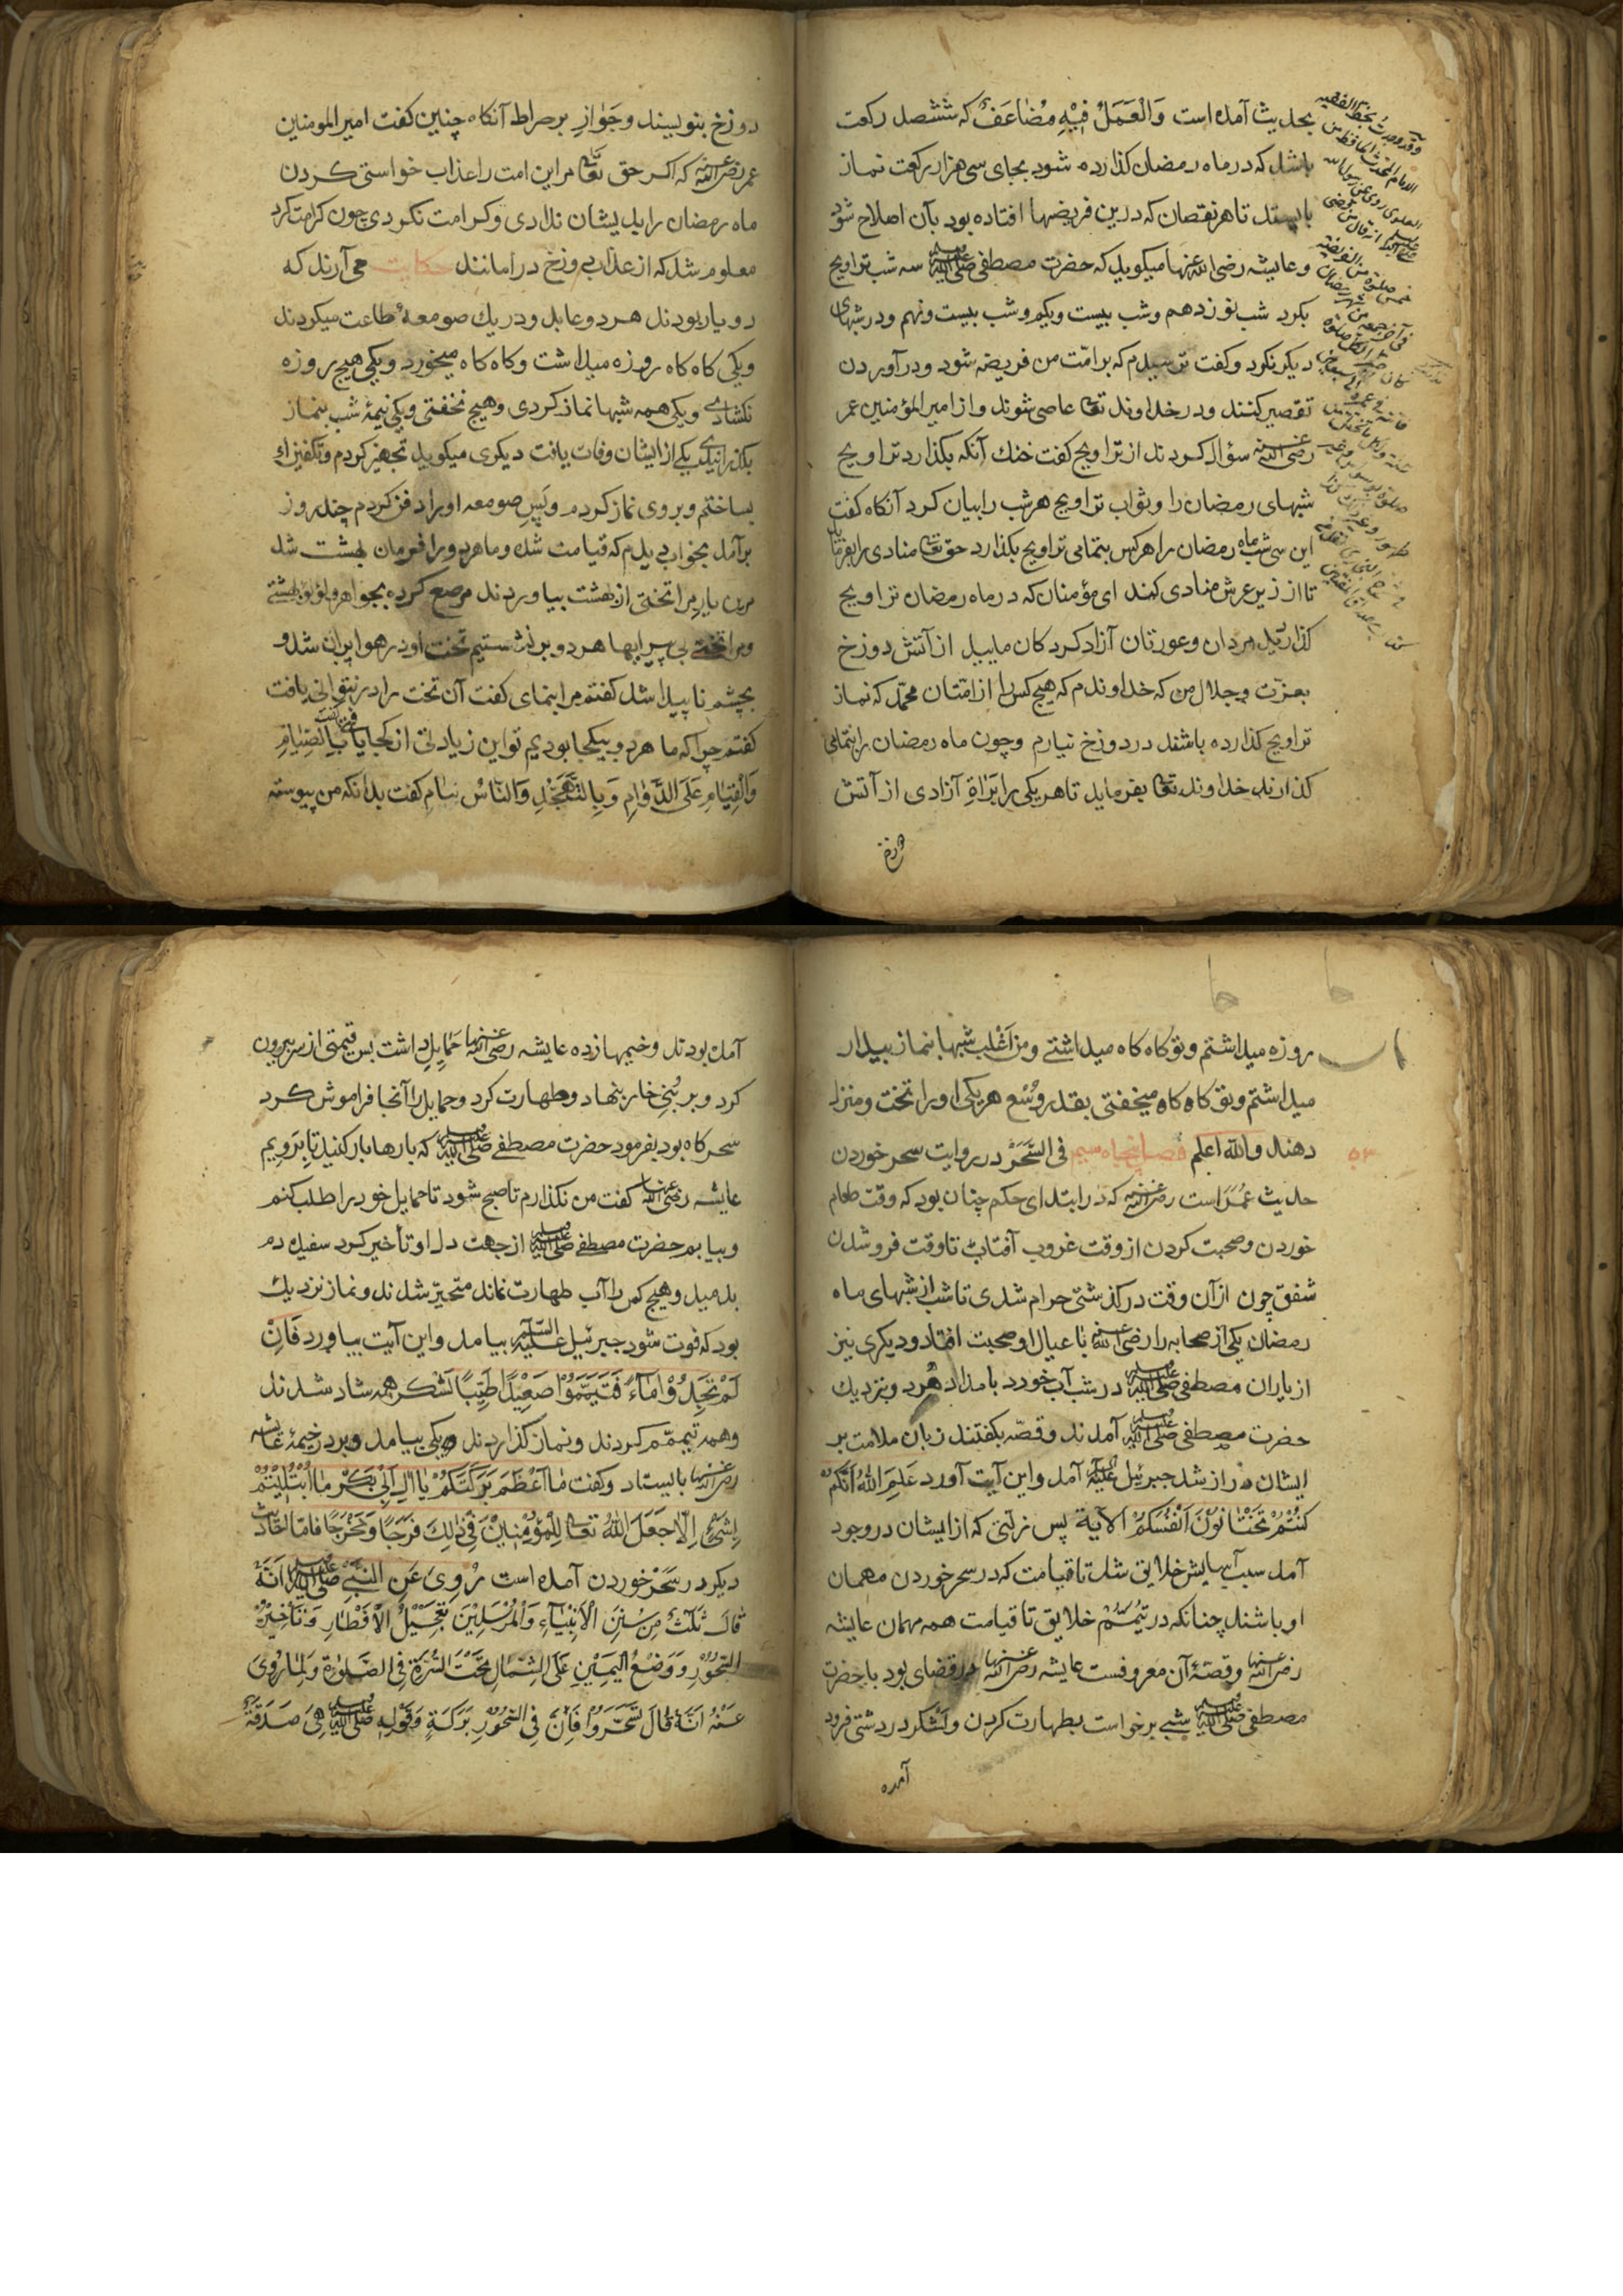 بحدیث آمده است وَالْعَمَلُ فِیْهِ مُضَاعَفٌ که ششصد رکعت
باشد که در ماه رمضان کذارده شود بجای سی هزار رکعت نماز
بایستد تا هر نقصان که درین فریضها افتاده بود بآن اصلاح شود
وعایشه رضی الله عنها میکوید که حضرت مصطفی صلی الله علیه وسلم سه شب تراویح
بکرد شب نوزدهم وشب بیست ویکم وشب بیست ونهم ودر شبهای
دیکر نکرد وکفت ترسیدم که بر امّت من فریضه شود ودر آوردن
تقصیر کنند ودر خداوند تعالی عاصی شوند واز امیر المؤمنین عمر
رضی الله عنه سؤال کردند از تراویح کفت خنك آنکه بکذارد تراویح
شبهای رمضان را وثواب تراویح هر شب را بیان کرد آنکاه کفت
این سی شب ماه رمضان را هر کس بتمامی تراویح بکذارد حق تعالی منادی را بفرماید
تا از زیر عرش منادی کند ای مؤمنان که در ماه رمضان تراویح
کذاردید مردان وعورتان آزاد کردکان مایید از آتش دوزخ
بعزّت وجلال من که خداوندم که هیچ کس را از امّتان محمّد که نماز
تراویح کذارده باشند در دوزخ نیارم وچون ماه رمضان را بتمامی
کذارند خداوند تعالی بفرماید تا هر یکی را بَرَاةِ آزادی از آتش
دوزخ
دوزخ بنویسند وجَوَازِ بر صراط آنکاه چنین کفت امیر المومنین
عمر رضی الله عنه که اکر حق تعالی مر این امت را عذاب خواستی کردن
ماه رمضان را بدیشان ندادی وکرامت نکردی چون کرامت کرد
معلوم شد که از عذاب دوزخ در امانند حکایت می آرند که
دو یار بودند هر دو عابد ودر یك صومعهٔ طاعت میکردند
ویکی کاه کاه روزه میداشت وکاه کاه میخورد ویکی هیچ روزه
نکشادی ویکی همه شبها نماز کردی وهیچ نخفتی ویکی نیمهٔ شب بنماز
بکذرانیدی یکی از ایشان وفات یافت دیکری میکوید تجهیز کردم وتکفین او
بساختم وبر وی نماز کردم وپسِ صومعه او را دفن کردم چند روز
برآمد بخواب دیدم که قیامت شده وما هر دو را فرمان بهشت شد
مرین یارِ مرا تختی از بهشت بیاوردند مرصع کرده بجواهر ولؤلؤ بهشتی
ومرا تختی بی پیرایها هر دو برنشستیم تخت او در هوا پران شد و
بچشم ناپیدا شد کفتم مرا بنمای کفت آن تخت را در نتوانی یافت
کفتم چرا که ما هر دو بیکجا بودیم تو این زیادتی از کجا یافتی کفت بِالصِّیَامِ
وَالْقِیَامِ عَلَی الدَّوَامِ وَبِالتَّهَجُّدِ وَالنَّاسُ نِیَام کفت بدانکه من پیوسته
روزه میداشتم وتو کاه کاه میداشتی ومن اَغْلب شبها بنماز بیدار
میداشتم وتو کاه کاه میخفتی بقدر وُسْع هر یکی او را تخت ومنزل
دهند والله اعلم فصل پنجاه سیم فی السَّحَرْ در روایت سحر خوردن
۵۳
حدیث عُمَرَ است رضی الله عنه که در ابتدای حکم چنان بود که وقت طعام
خوردن وصحبت کردن از وقت غروب آفتاب تا وقت فروشدن
شفق چون از آن وقت در کذشتی حرام شدی تا شب از شبهای ماه
رمضان یکی از صحابه را رضی الله عنه با عیال او صحبت افتاد ودیکری نیز
از یاران مصطفی صلی الله علیه وسلم در شب آب خورد بامداد هر دو بنزدیك
حضرت مصطفی صلی الله علیه وسلم آمدند وقصّه بکفتند زبان ملامت بر
ایشان دراز شد جبرئیل علیه السلام آمد واین آیت آورد عَلِمَ اللهُ اَنَّکُمْ
کُنْتُمْ تَخْتَانُوْنَ اَنْفُسَکُمْ الآیة پس زلّتی که از ایشان در وجود
آمد سبب آسایش خلایق شد تا قیامت که در سحر خوردن مهمان
او باشند چنانکه در تیمّم خلایق تا قیامت همه مهمان عایشه
رضی الله عنها وقصّهٔ آن معروفست عایشه رضی الله عنها قضای بود با حضرت
مصطفی صلی الله علیه وسلم شبی برخواست بطهارت کردن ولشکر در دشتی فرود
آمده
آمده بودند وخیمها زده عایشه رضی الله عنها حَمَایِلِ داشت بس قیمتی از سر بیرون
کرد وبر بُنِ خار بنهاد وطهارت کرد وحمایل را آنجا فراموش کرد
سحرکاه بود بفرمود حضرت مصطفی صلی الله علیه وسلم که بارها بار کنید تا برویم
عایشه رضی الله عنها کفت من نکذارم تا صبح شود تا حمایل خود را طلب کنم
وبیابم حضرت مصطفی صلی الله علیه وسلم از جهت دل او تأخیر کرد سفیده دم
بدمید وهیچ کس را آب طهارت نماند متحیّر شدند ونماز نزدیك
بود که فوت شود جبرئیل علیه السّلام بیامد واین آیت بیاورد فَاِنْ
لَمْ تَجِدُوْا مَآءً فَتَیَمَّمُوْا صَعِیْدًا طَیِّبًا لشکر همه شاد شدند
وهمه تیمّم کردند ونماز کذاردند ویکی بیامد وبر در خیمهٔ عایشه
رضی الله عنها بایستاد وکفت مَا اَعْظَمَ بَرَکَتَکُمْ یَا اٰلَ اَبِیْ بَکْرٍ مَا ابْتُلِیْتُمْ
بِشَیْءٍ اِلَّا جَعَلَ اللهُ تعالی لِلْمُؤْمِنِیْنَ فِیْ ذٰلِكَ فَرَجًا وَمَخْرَجًا فامّا احادیث
دیکر در سَحَر خوردن آمده است رُوِیَ عَنِ النَّبِیِّ صلی الله علیه وسلم اَنَّهٗ
قَالَ ثَلٰثٌ مِنْ سُنَنِ الْاَنْبِیَآءِ وَالْمُرْسَلِیْنَ تَعْجِیْلُ الْاِفْطَارِ وَتَأْخِیْرُ
السَّحُوْرِ وَوَضْعُ الْیَمِیْنِ عَلَی الشِّمَالِ تَحْتَ السُّرَّةِ فِی الصَّلٰوةِ وَلِمَا رُوِیَ
عَنْهُ اَنَّهٗ قَالَ تَسَحَّرُوْا فَاِنَّ فِی السَّحُوْرِ بَرَکَةٍ وَقَوْلِهٖ صلی الله علیه وسلم هِیَ صَدَقَةٌ